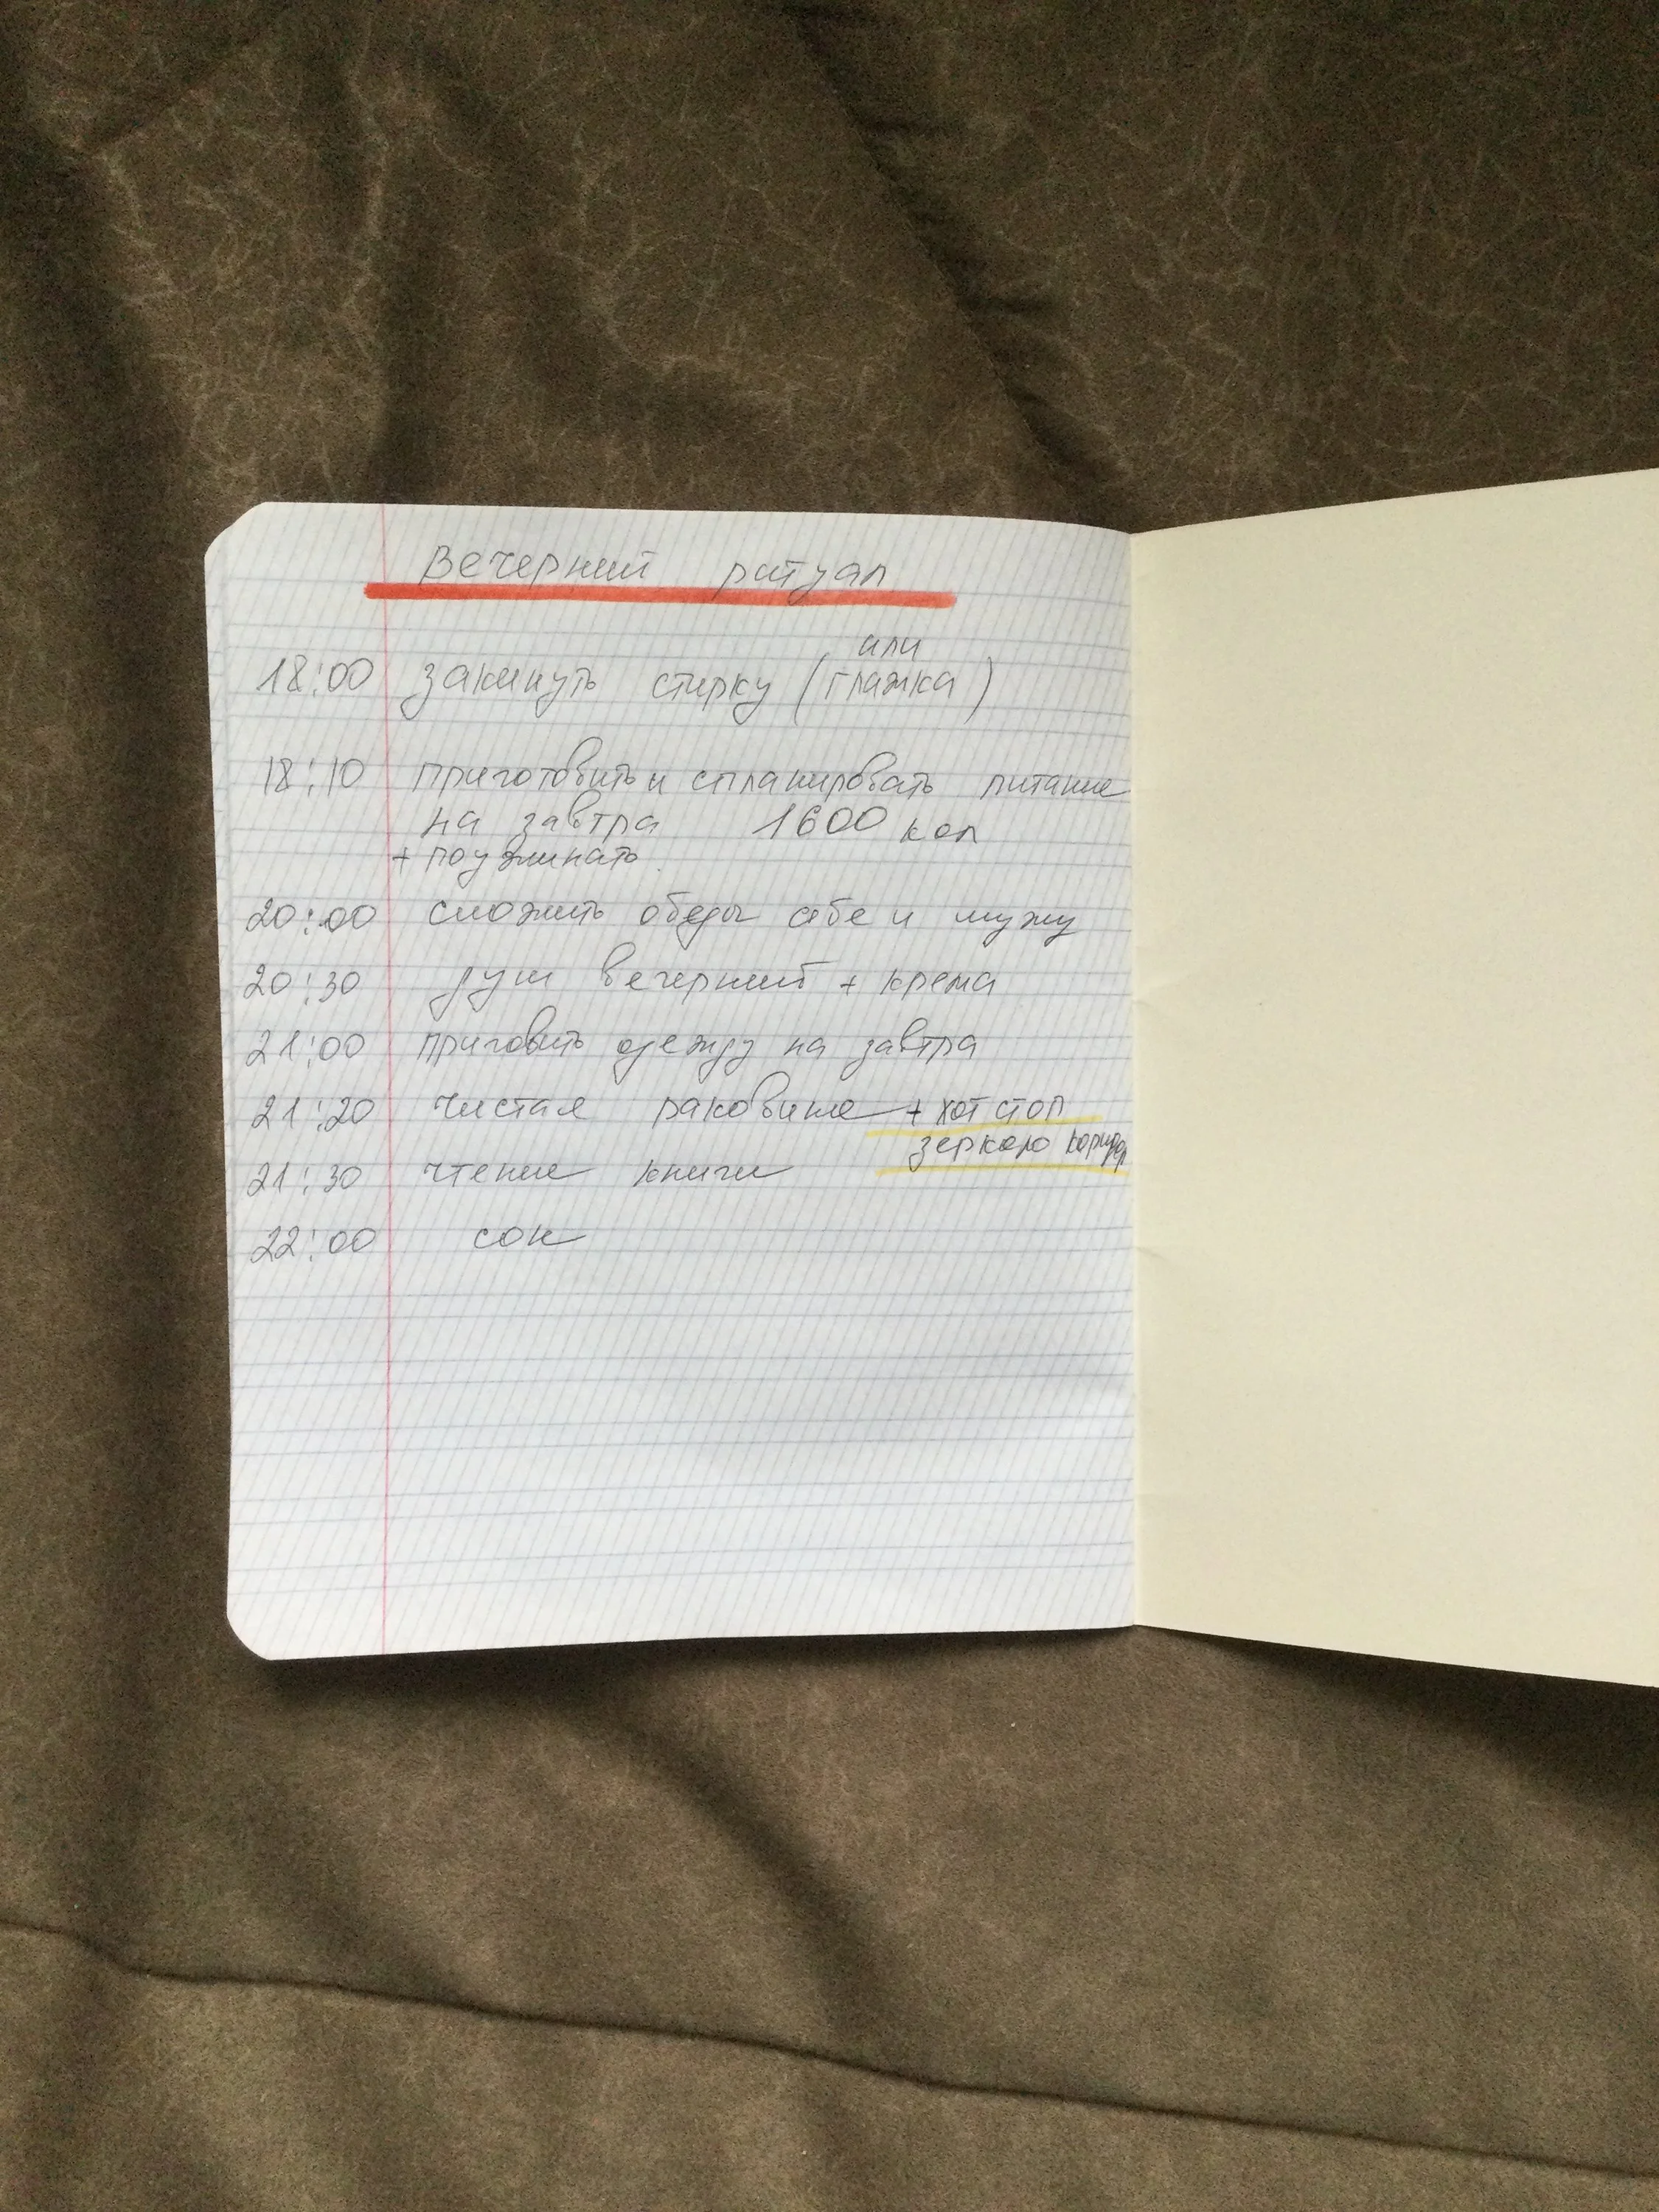 Вечерний ритуал
или
18:00 закинуть стирку (глажка)
18:10 приготовить и спланировать питание
на завтра 1600 кал
+ поужинать.
20:00 сложить обеды себе и мужу
20:30 душ вечерний + крема
21:00 приговить одежду на завтра
21:20 чистая раковина + хот стоп
зеркало коридор
21:30 чтение книги
22:00 сон